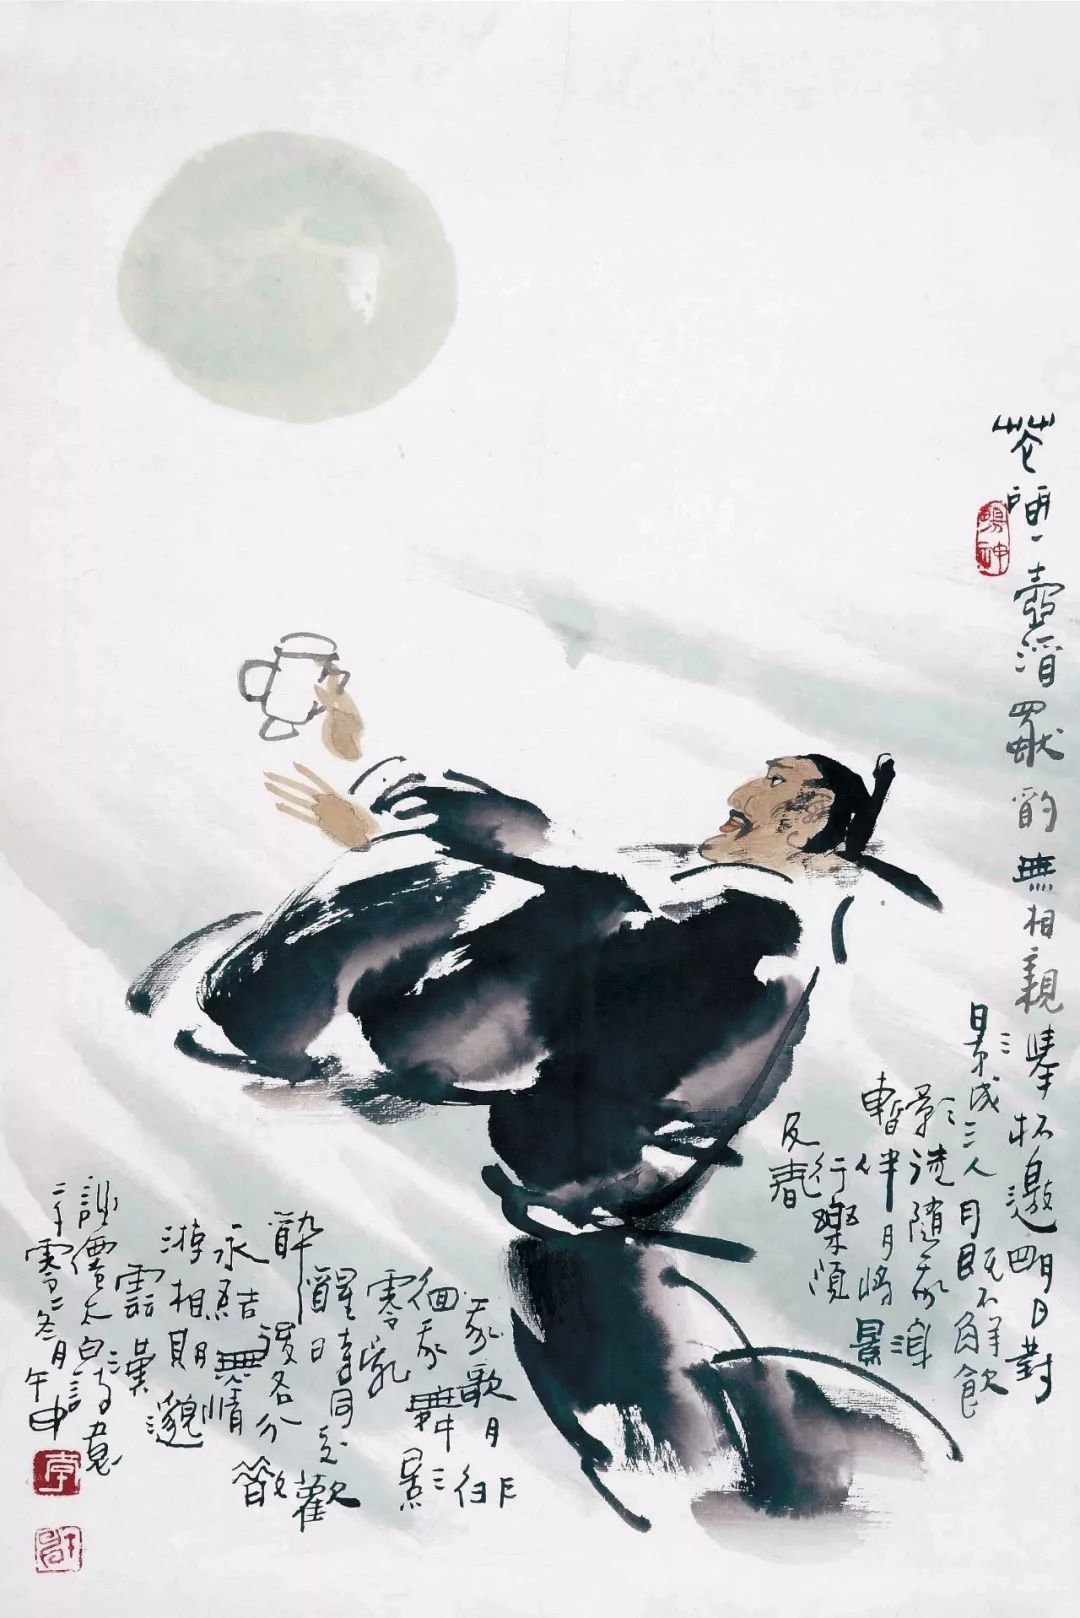 花間一壺酒獨酌無相親舉杯邀明月對
影成三人月既不解飲
影徒隨我身
暫伴月將影
行樂須
及春
我歌月徘
徊我舞影
零亂
醒時同交歡
醉後各分散
永結無情
游相期邈
雲漢
太白詩意
二千零二冬月